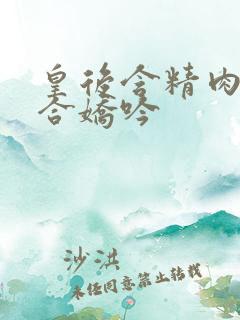 皇后含精肉
合嬌吟
沙洪
未经同意禁止转载